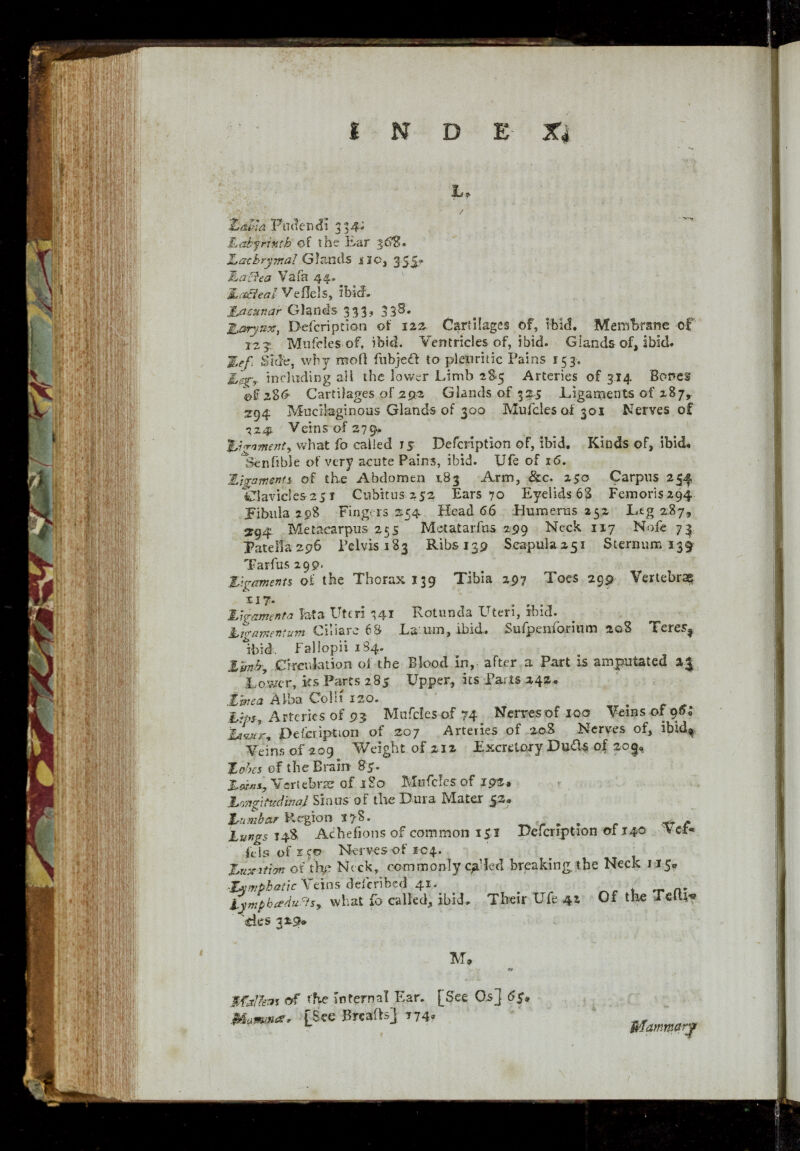 I N D E X.
L.
Labia Pudendi 334.
Labyrinth of the Ear 368.
Lachrymal Glands 110, 355.
Lactea Vaſa 44.
Lacteal Veſſels, ibid.
Lacunar Glands 333, 338.
Larynx, Deſcription of 122 Cartilages of, ibid. Membrane of
123. Muſcles of, ibid. Ventricles of, ibid. Glands of, ibid.
Lef. Side, why moſt ſubject to pleuritic Pains 153.
Leg, including all the lower Limb 285 Arteries of 314 Bones
of 286 Cartilages of 292 Glands of 325 Ligaments of 287,
294 Mucilaginous Glands of 300 Muſcles of 301 Nerves of
324 Veins of 279.
Ligament, what ſo called 15 Deſcription of, ibid. Kinds of, ibid.
Senſible of very acute Pains, ibid. Uſe of 16.
Ligaments of the Abdomen 183 Arm, &c. 250 Carpus 254
Clavicles 251 Cubitus 252 Ears 70 Eyelids 68 Femoris 294
Fibula 298 Fingers 254 Head 66 Humerus 252 Leg 287,
294 Metacarpus 255 Metatarſus 299 Neck 117 Noſe 73
Patella 296 Pelvis 183 Ribs 139 Scapula 251 Sternum 139
Tarſus 299.
Ligaments of the Thorax 139 Tibia 297 Toes 299 Vertebræ
117.
Ligamenta lata Uteri 341 Rotunda Uteri, ibid.
Ligamentum Ciliare 68 Latum, ibid. Suſpenſorium 208 Teres,
ibid. Fallopii 184.
Limb, Circulation of the Blood in, after a Part is amputated 23
Lower, its Parts 285 Upper, its Parts 242.
Linea Alba Colli 120.
Lips, Arteries of 93 Muſcles of 74 Nerves of 100 Veins of 96.
Liver, Deſcription of 207 Arteries of 208 Nerves of, ibid.
Veins of 209 Weight of 212 Excretory Ducts of 209.
Lobes of the Brain 85.
Loins, Vertebræ of 180 Muſcles of 192.
Longitudinal Sinus of the Dura Mater 52.
Lumbar Region 178.
Lungs 148 Acheſions of common 151 Deſcription of 140 Veſ-
ſels of 150 Nerves of 104.
Luxation of the Neck, commonly called breaking the Neck 115.
Lymphatic Veins deſcribed 41.
Lymphæducts, what ſo called, ibid. Their Uſe 42 Of the Teſti-
cles 329.
M.
Malleus of the internal Ear. [See Os] 65.
Mammæ. [See Breaſts] 174.
Mammary